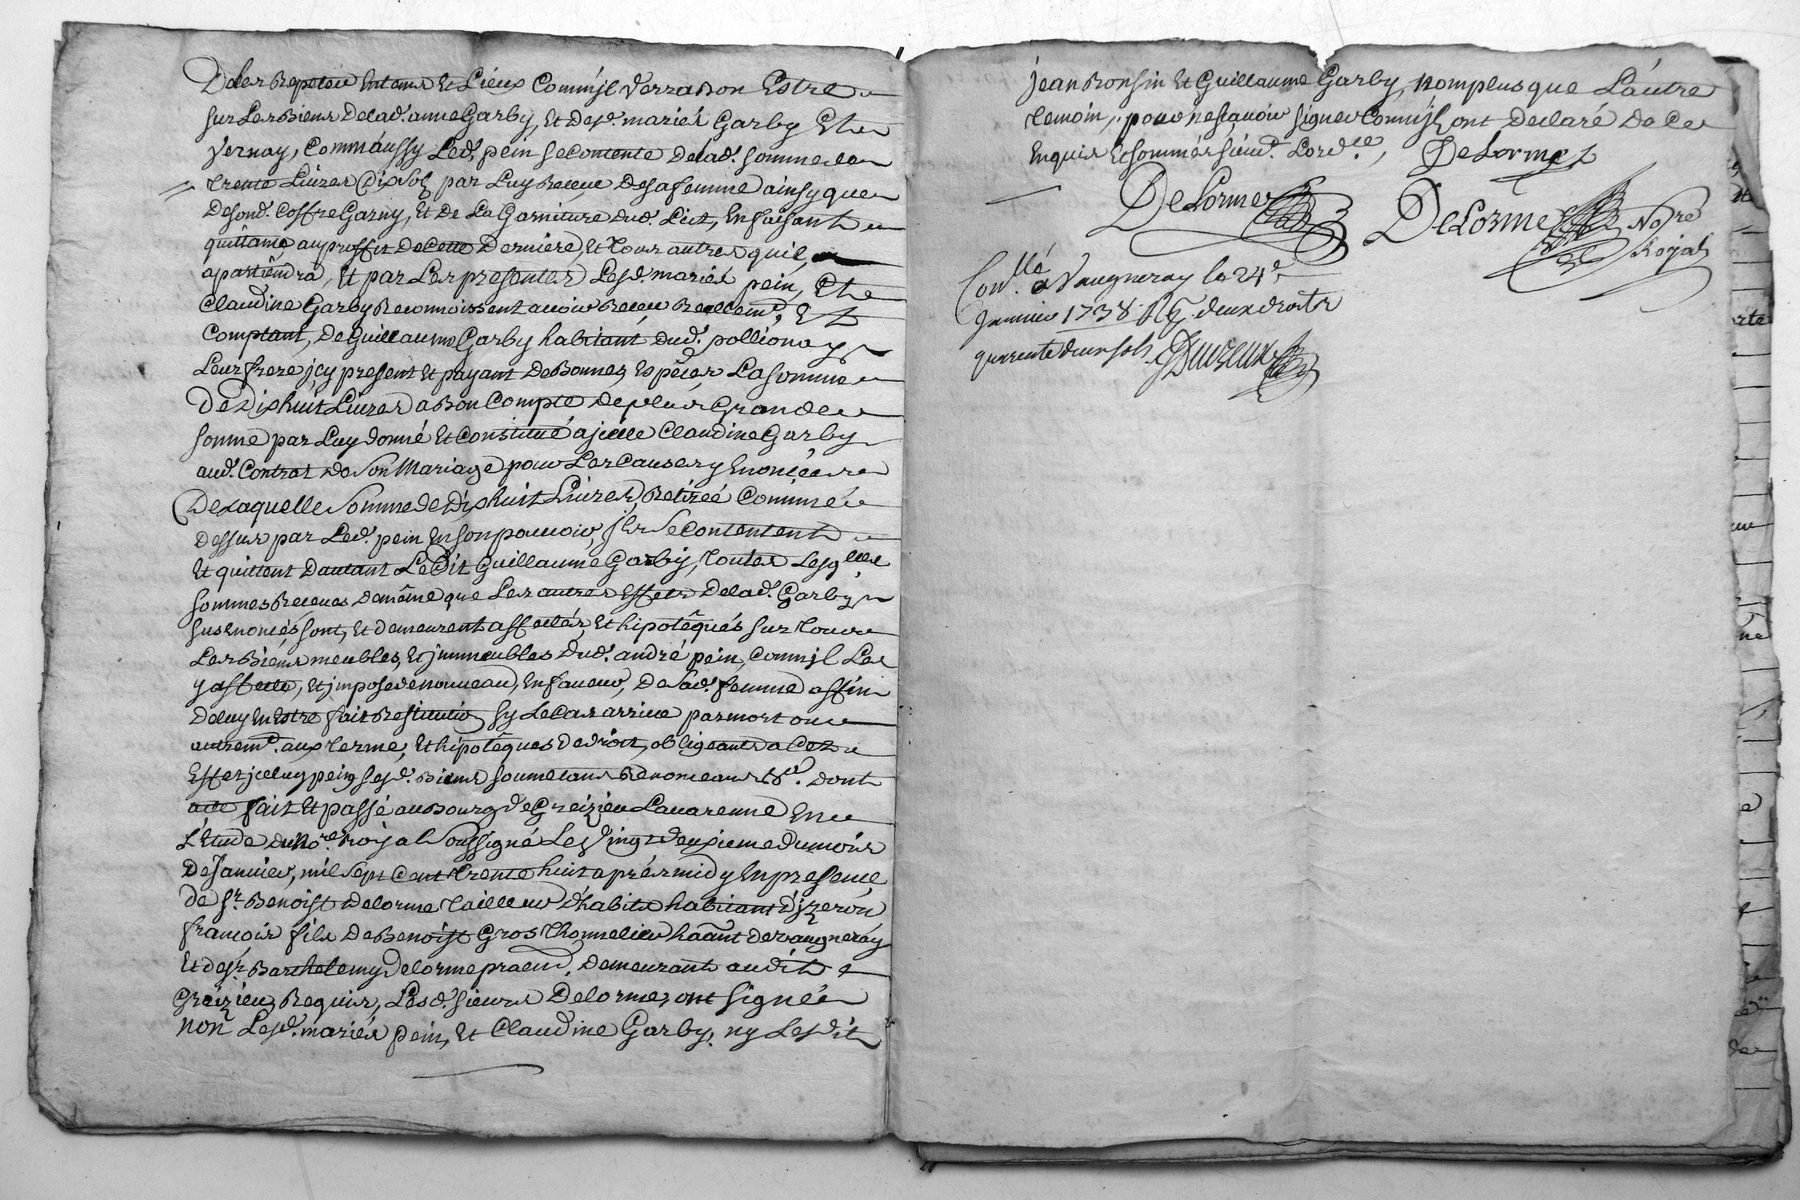 De les Repeter en tems et Lieux Comm'jl verra Bon Estre
sur Les Biens de lad. anne Garby, et desd. mariés Garby Et
Vernay, Comm'aussy Led. pein se Contente de lad. somme de
trente Livres Dix sols par Luy Receue de sa femme ainsy que
de sond. Coffre Garny, et De La Garniture dud. Lict, En faisant
quittance au proffit de Cette Derniere, et tous autres qu'il
apartiendra, et par Les presentes Lesd. mariés pein, Et
Claudine Garby Reconnoissent avoir Receu Reellemt. Et
Comptant, De Guillaume Garby habitant dud. pollionay
Leur frere jcy present et payant De Bonnes Espèces La somme
De Dix huit Livres a Bon Compte de plus Grande
somme par Luy donné et Constitué a jcelle Claudine Garby
aud. Contrat de Son Mariage pour Les Causes y Enoncées
De Laquelle Somme de Dix huit Livres, Retirée Comme
dessus par Led. pein En son pouvoir, jls se Contentent
Et quittent D'autant Le Dit Guillaume Garby, toutes Lesqlles
sommes Receues de même que Les autres Effets de lad. Garby
sus Enoncés sont, et demeurent affectés, et hipotêqués sur tous
Les Biens meubles, et jmmeubles dud. andré pein, Comm'jl Les
y affecte, et jmpose de nouveau, En faveur, De Sad. femme affin
de luy En Estre fait Restitution sy Le Cas arrive par mort ou
autremt. aux termes, et hipotêques de droit, obligeant a Cet
Effet jceluy pein, sesd. Biens soumetant Renonceant &c. dont
acte fait et passé au Bourg de Greizieu Lavarenne En
L'Etude du Nore. Roijal Soussigné Le Vingt deuxieme du mois
de Janvier, mil sept Cent trente huit aprés midy En presence
de sr. Benoist Delorme tailleur d'habits habitant d'jzeron
francois fils De Benoist Gros thonnelier haânt de vaugneray
Et de sr. Barthelemy Delorme praen. demeurant audit
Greizieu, Requis, Lesd. sieurs Delorme, ont signé
non Lesd. mariés pein, Et Claudine Garby, ny Lesdit
jean Ronsin et Guillaume Garby, nomplus que L'autre
temoin, pour ne sçavoir signer Comm'jl ont Declaré De Ce
Enquis Et sommés suivt. Lordce, DeLorme
DeLorme DeLorme Nore
Royal
Conllé a Vaugneray le 24e
Janvier 1738 Rg deux droits
quarente deux sols